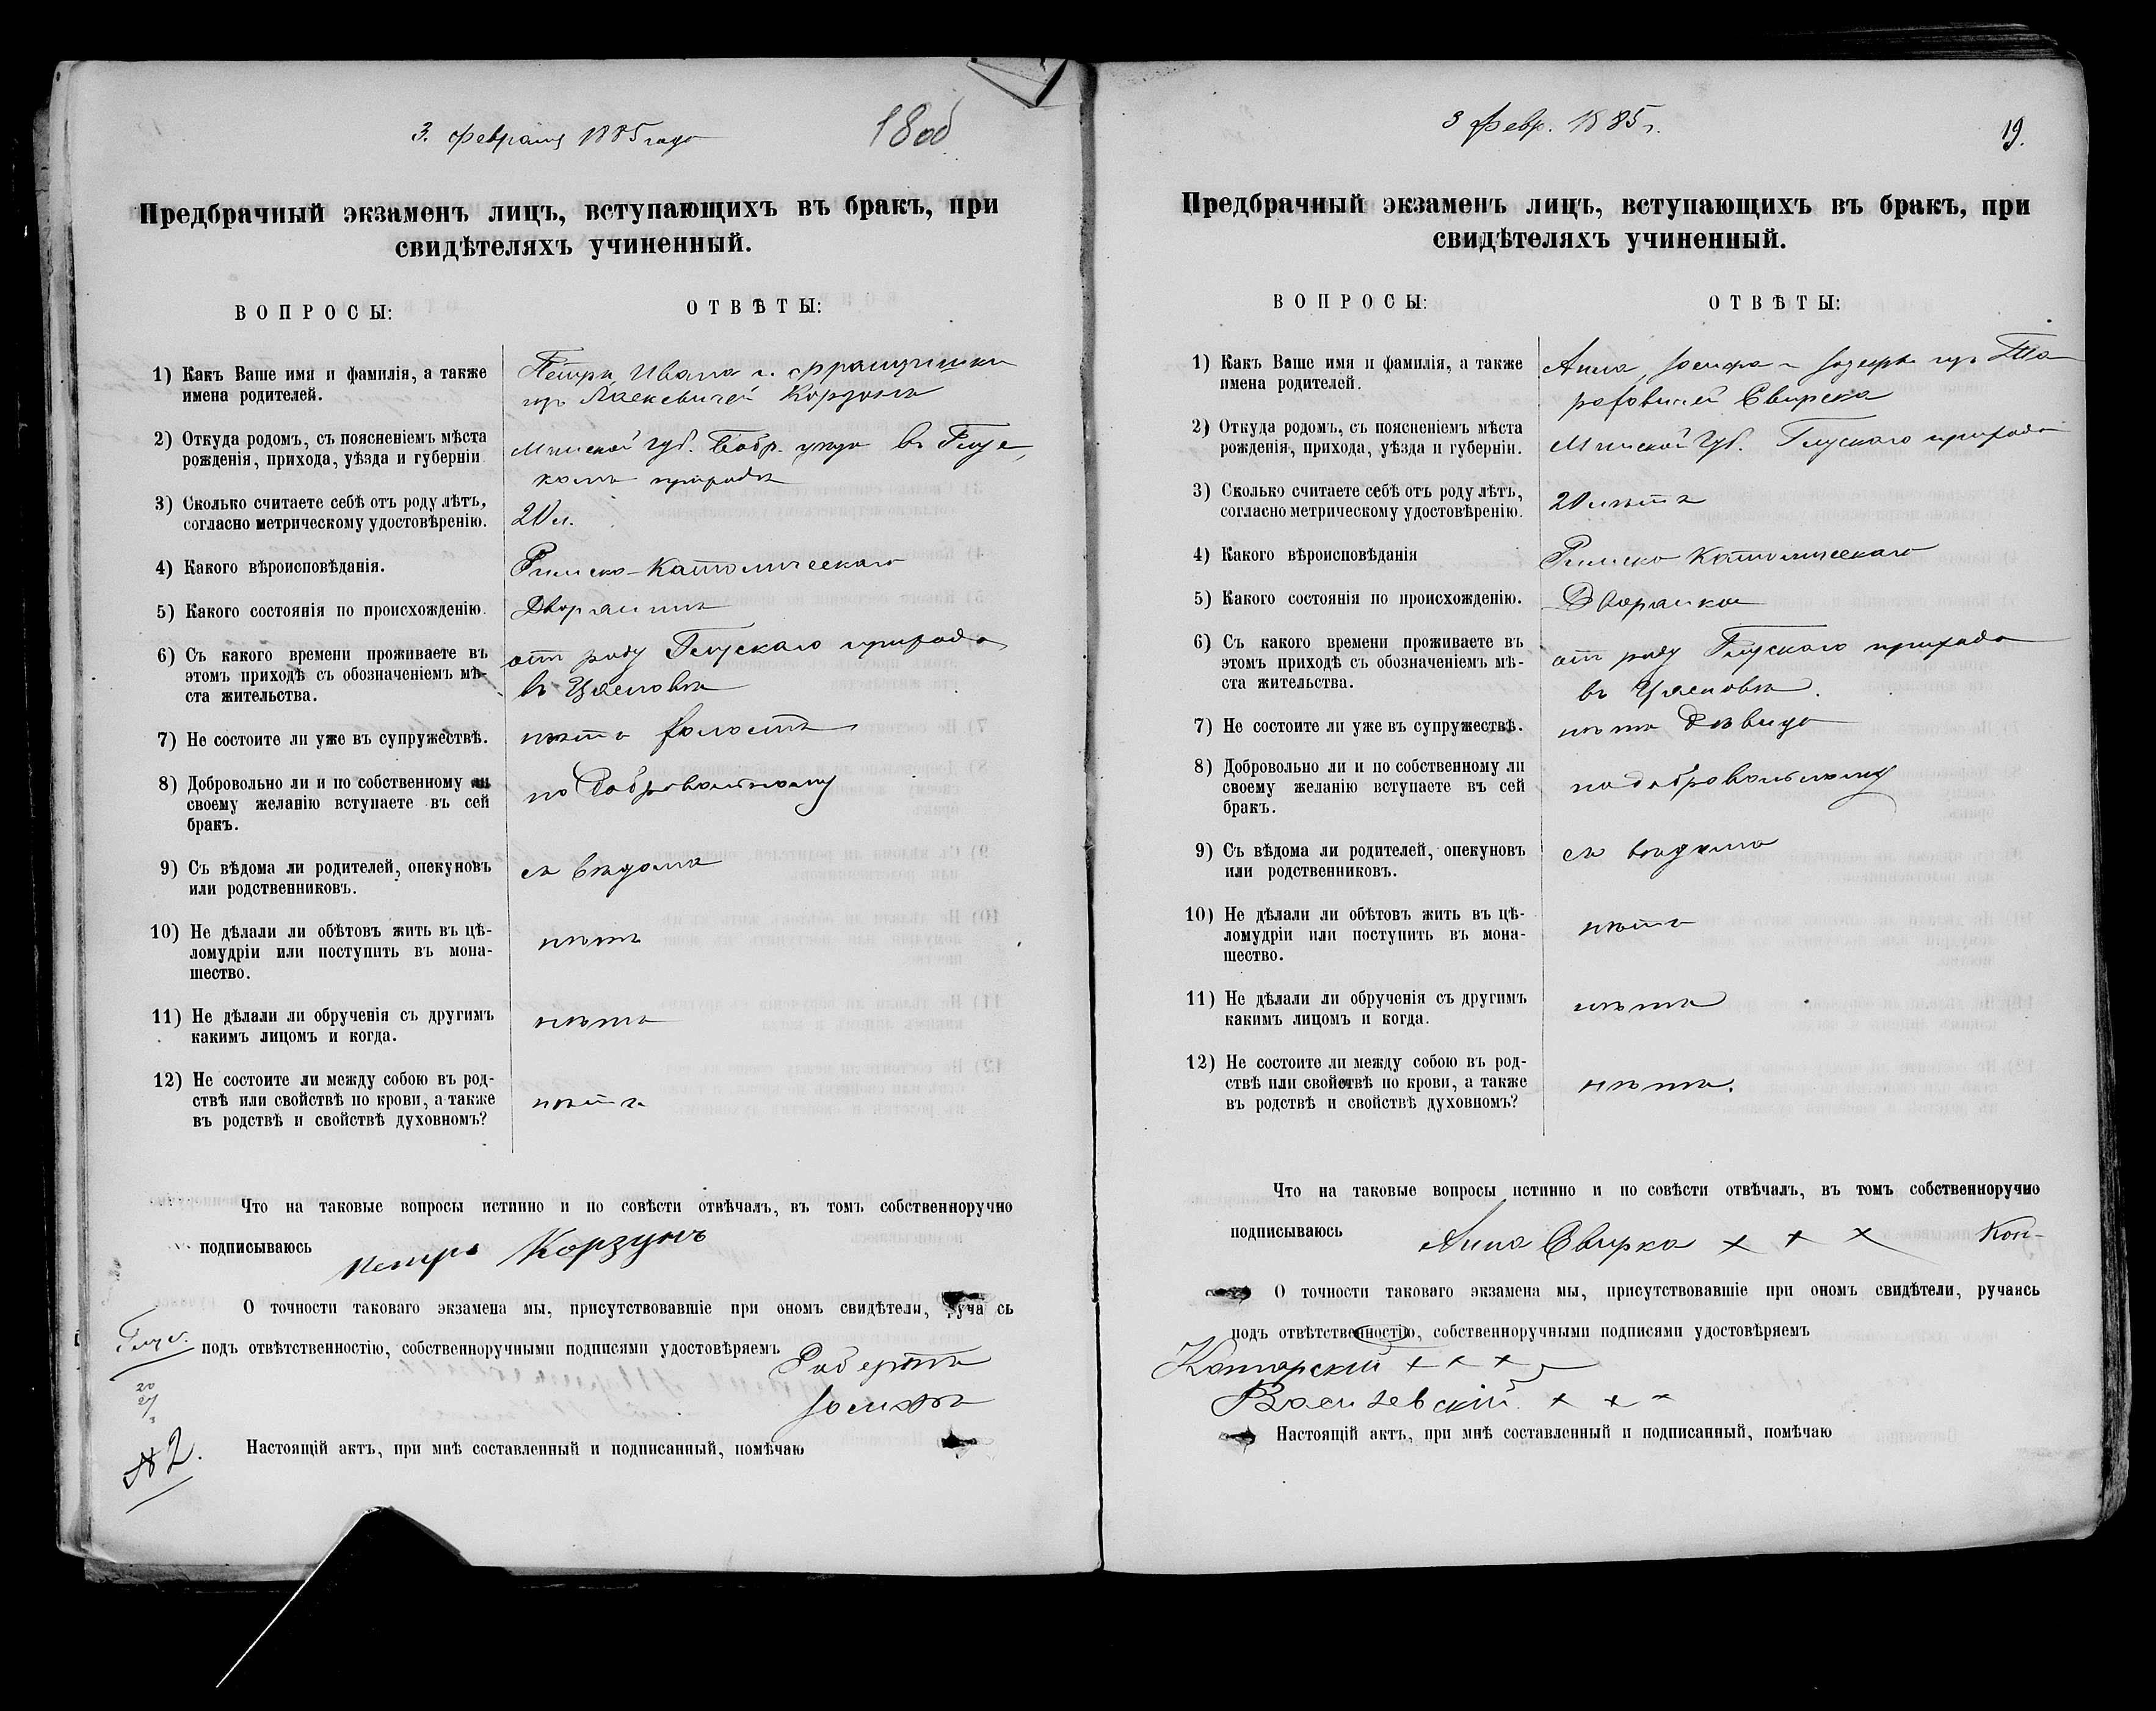 3. февраля 1885 года
18 об
Предбрачный экзаменъ лицъ, вступающихъ въ бракъ, при
свидѣтеляхъ учиненный.
ВОПРОСЫ:
ОТВѢТЫ:
1) Какъ Ваше имя и фамилія, а также
имена родителей.
Петръ Ивана и Францишки
изъ Корзунъ
2) Откуда родомъ, съ поясненіемъ мѣста
рожденія, прихода, уѣзда и губерніи
Минской Губ. Бобр. уѣзда въ Глус-
комъ приходѣ
3) Сколько считаете себѣ отъ роду лѣтъ,
согласно метрическому удостовѣренію.
20 л.
4) Какого вѣроисповѣданія.
Римско-Католическаго
5) Какого состоянія по происхожденію.
Дворянинъ
6) Съ какого времени проживаете въ
этомъ приходѣ съ обозначеніемъ мѣ-
ста жительства.
отъ роду Глускаго прихода
въ
7) Не состоите ли уже въ супружествѣ.
нѣтъ холостъ
8) Добровольно ли и по собственному ли
своему желанію вступаете въ сей
бракъ.
по добровольному
9) Съ вѣдома ли родителей, опекуновъ
или родственниковъ.
съ вѣдома
10) Не дѣлали ли обѣтовъ жить въ цѣ-
ломудріи или поступить въ мона-
шество.
нѣтъ
11) Не дѣлали ли обрученія съ другимъ
какимъ лицомъ и когда.
нѣтъ
12) Не состоите ли между собою въ род-
ствѣ или свойствѣ по крови, а также
въ родствѣ и свойствѣ духовномъ?
нѣтъ
Что на таковые вопросы истинно и по совѣсти отвѣчалъ, въ томъ собственноручно
подписываюсь Петръ Корзунъ
О точности таковаго экзамена мы, присутствовавшіе при ономъ свидѣтели, руча сь
подъ отвѣтственностію, собственноручными подписями удостовѣряемъ
Робертъ
Іосифъ
№ 2.
Настоящій актъ, при мнѣ составленный и подписанный, помѣчаю
3 февр. 1885 г.
19.
Предбрачный экзаменъ лицъ, вступающихъ въ бракъ, при
свидѣтеляхъ учиненный.
ВОПРОСЫ:
ОТВѢТЫ:
1) Какъ Ваше имя и фамилія, а также
имена родителей.
Анна, Іосифа и Іозефы изъ
Свирска
2) Откуда родомъ, съ поясненіемъ мѣста
рожденія, прихода, уѣзда и губерніи.
Минской Губ. Глускаго прихода
3) Сколько считаете себѣ отъ роду лѣтъ,
согласно метрическому удостовѣренію.
20 лѣтъ
4) Какого вѣроисповѣданія
Римско Католическаго
5) Какого состоянія по происхожденію.
Дворянка
6) Съ какого времени проживаете въ
этомъ приходѣ съ обозначеніемъ мѣ-
ста жительства.
отъ роду Глускаго прихода
въ
7) Не состоите ли уже въ супружествѣ.
нѣтъ Дѣвица
8) Добровольно ли и по собственному ли
своему желанію вступаете въ сей
бракъ.
по добровольному
9) Съ вѣдома ли родителей, опекуновъ
или родственниковъ.
съ вѣдома
10) Не дѣлали ли обѣтовъ жить въ цѣ-
ломудріи или поступить въ мона-
шество.
нѣтъ
11) Не дѣлали ли обрученія съ другимъ
какимъ лицомъ и когда.
нѣтъ
12) Не состоите ли между собою въ род-
ствѣ или свойствѣ по крови, а также
въ родствѣ и свойствѣ духовномъ?
нѣтъ.
Что на таковые вопросы истинно и по совѣсти отвѣчалъ, въ томъ собственноручно
подписываюсь Анна Свирка × × × Кон-
О точности таковаго экзамена мы, присутствовавшіе при ономъ свидѣтели, ручаясь
подъ отвѣтственностію, собственноручными подписями удостовѣряемъ
× × ×
Василевскій × × ×
Настоящій актъ, при мнѣ составленный и подписанный, помѣчаю